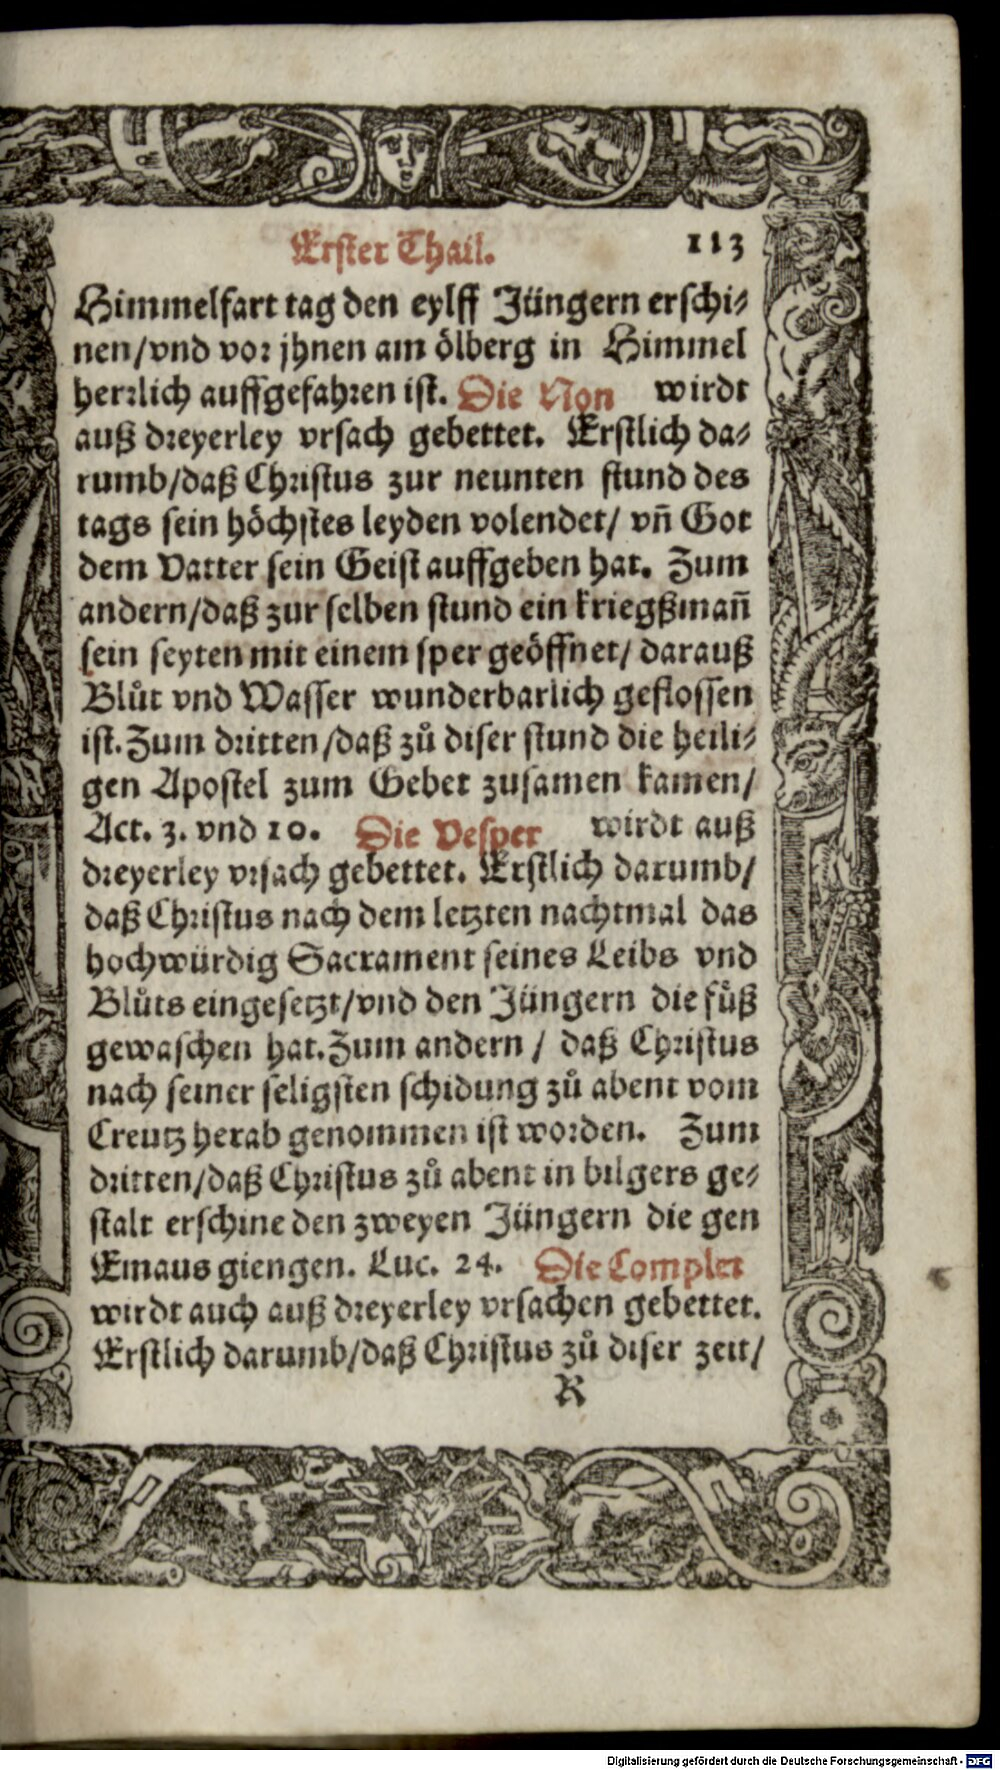 Erster Thail. 113
Himmelfart tag den eylff Jüngern erschi⸗
nen/vnd vor jhnen am ölberg in Himmel
herrlich auffgefahren ist. Die Non wirdt
auß dreyerley vrsach gebettet. Erstlich da⸗
rumb/daß Christus zur neunten stund des
tags sein höchstes leyden volendet/ vñ Got
dem Vatter sein Geist auffgeben hat. Zum
andern/daß zur selben stund ein kriegßmañ
sein seyten mit einem sper geöffnet/ darauß
Blůt vnd Wasser wunderbarlich geflossen
ist. Zum dritten/daß zů diser stund die heili⸗
gen Apostel zum Gebet zusamen kamen/
Act. 3. vnd 10. Die Vesper wirdt auß
dreyerley vrsach gebettet. Erstlich darumb/
daß Christus nach dem letzten nachtmal das
hochwürdig Sacrament seines Leibs vnd
Blůts eingesetzt/vnd den Jüngern die füß
gewaschen hat. Zum andern/ daß Christus
nach seiner seligsten schidung zů abent vom
Creutz herab genommen ist worden. Zum
dritten/daß Christus zů abent in bilgers ge⸗
stalt erschine den zweyen Jüngern die gen
Emaus giengen. Luc. 24. Die Complet
wirdt auch auß dreyerley vrsachen gebettet.
Erstlich darumb/daß Christus zů diser zeit/
R
Digitalisierung gefördert durch die Deutsche Forschungsgemeinschaft - DFG